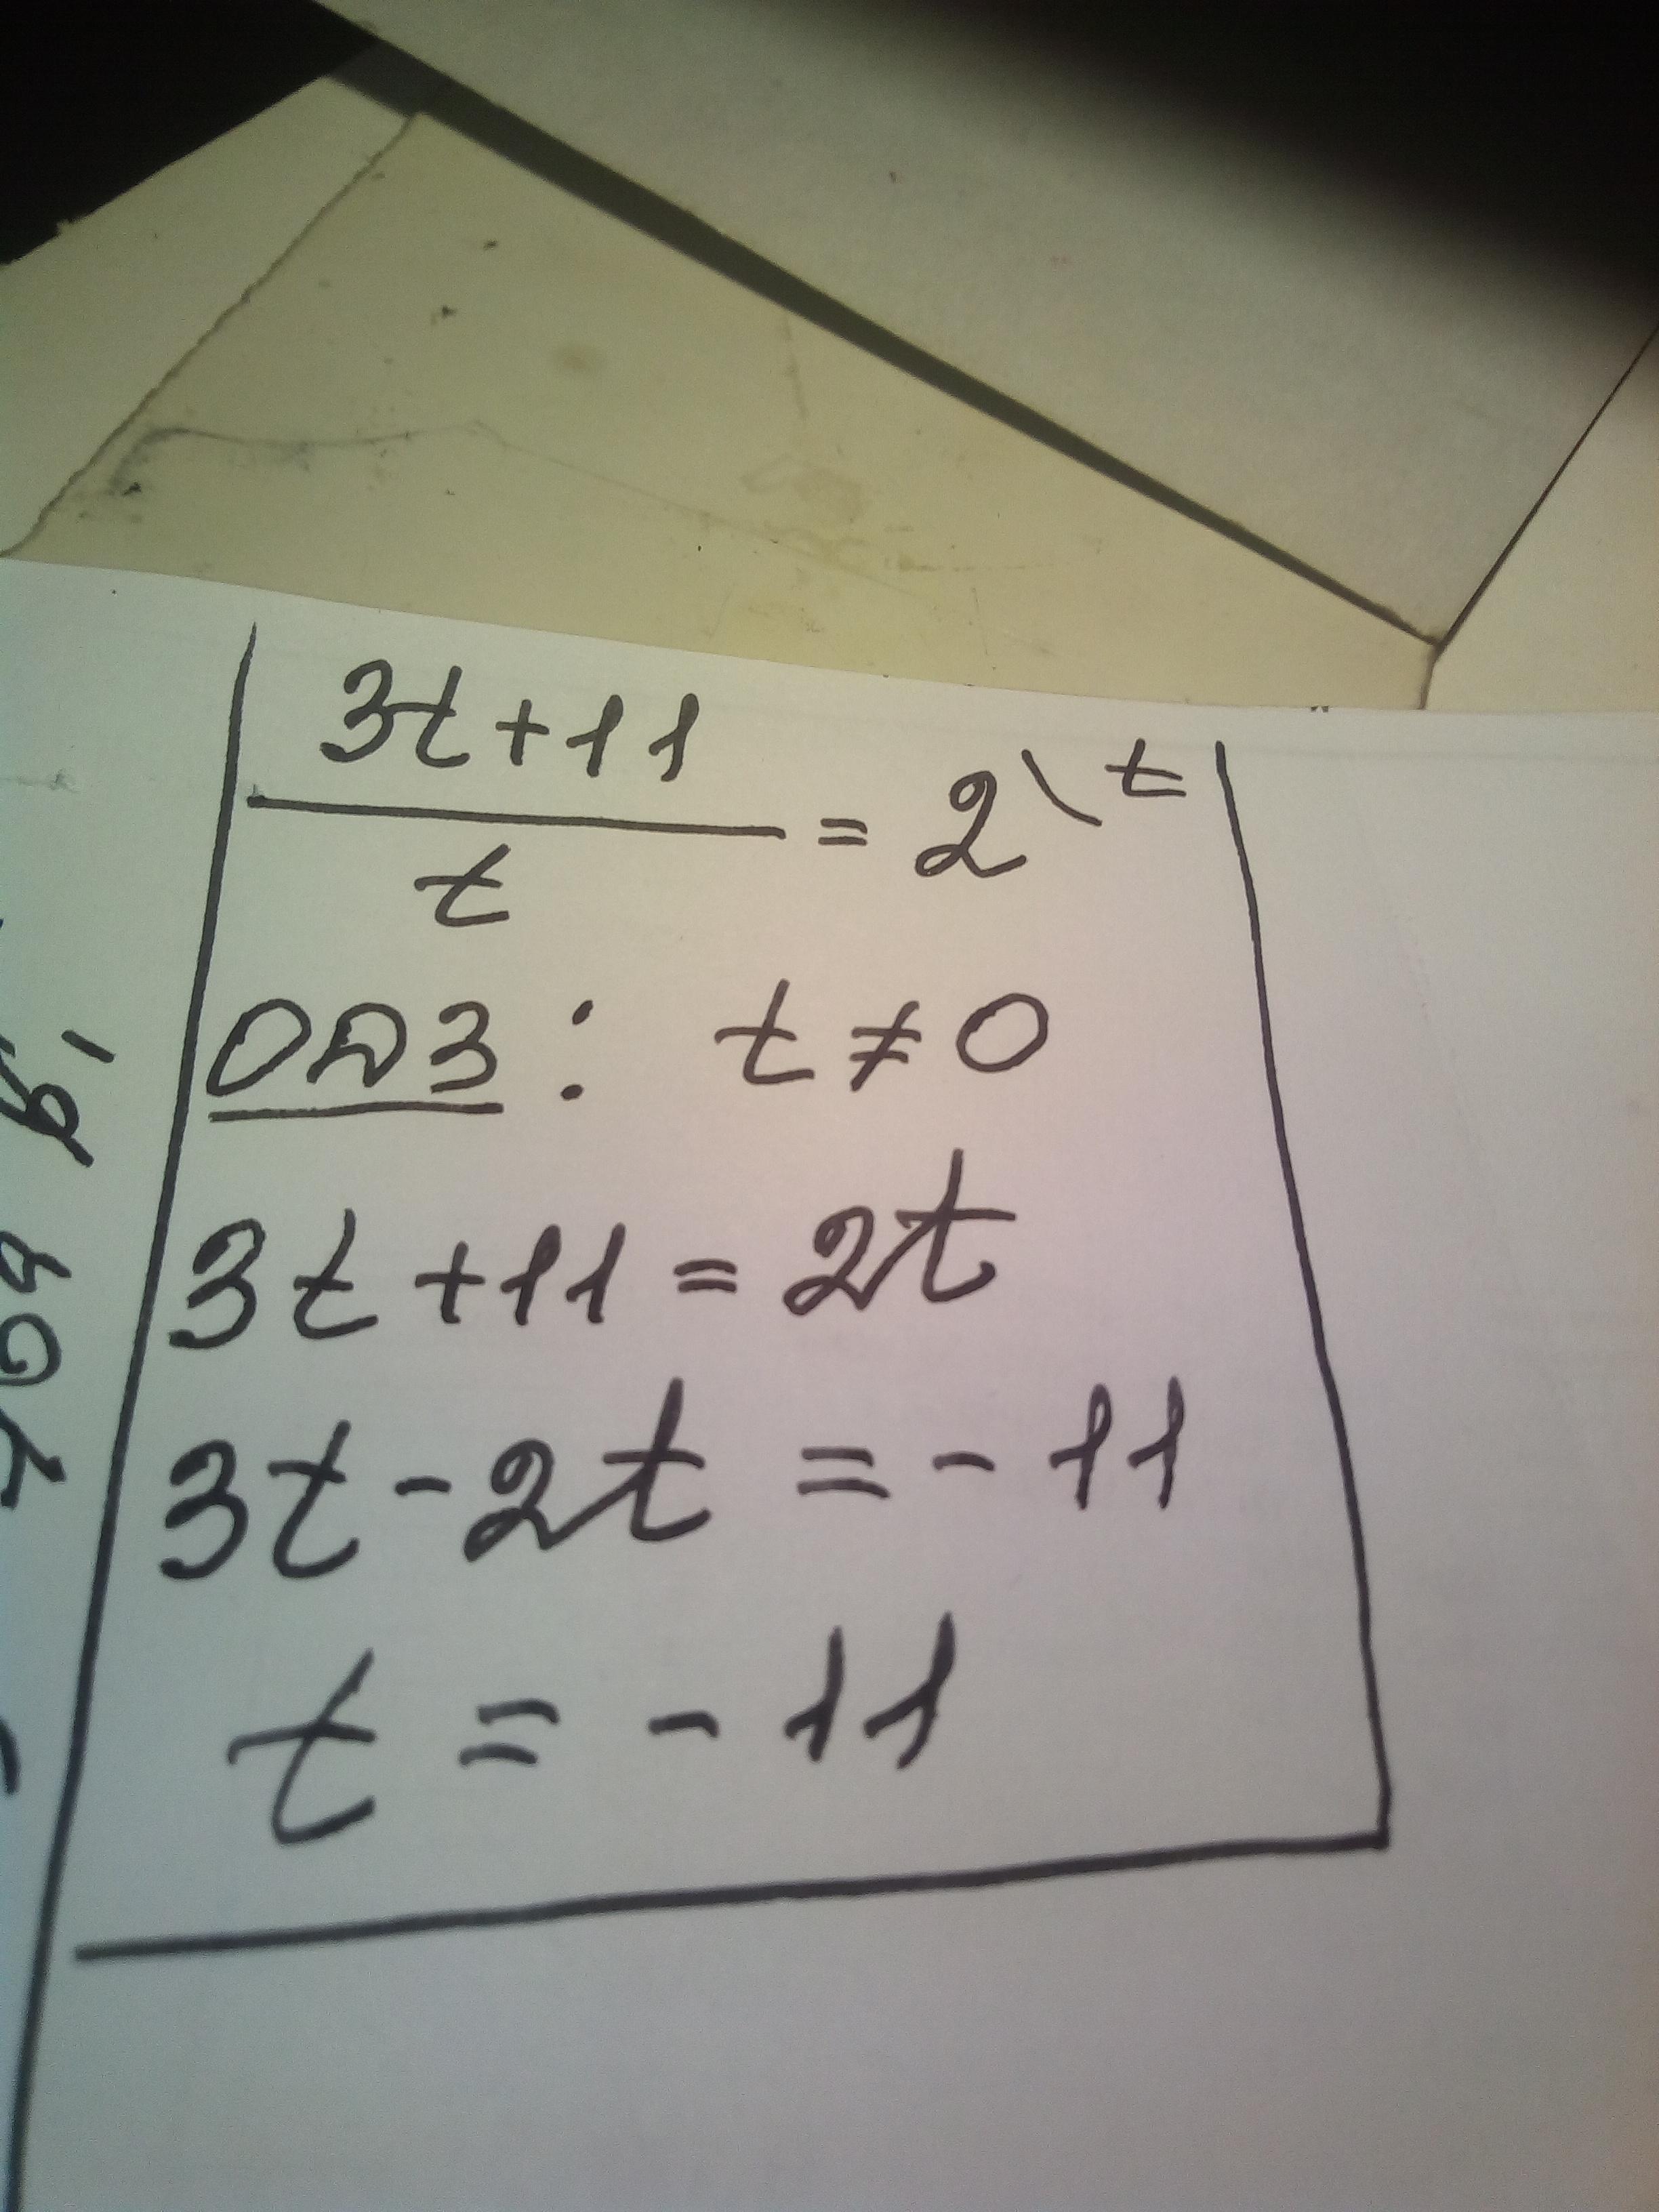 3t+11
t
= 2\t
ОДЗ: t ≠ 0
3t+11=2t
3t-2t = -11
t = -11